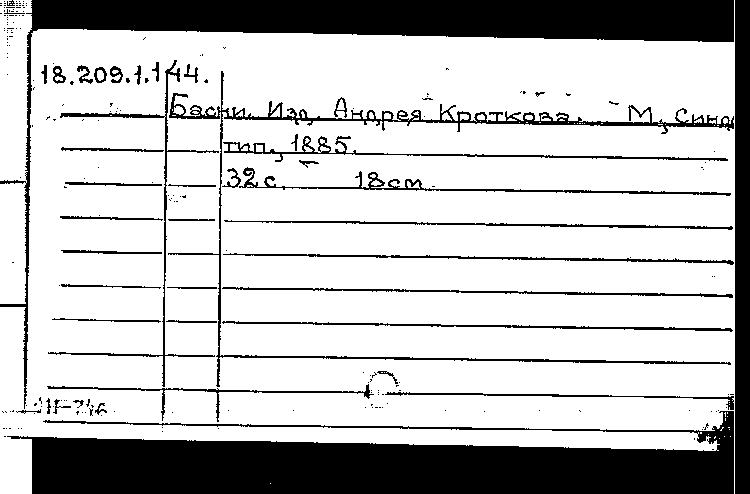 18.209.1.144.
Басни. Изд. Андрея Кроткова. М., Синод
тип., 1885.
32 с. 18 см